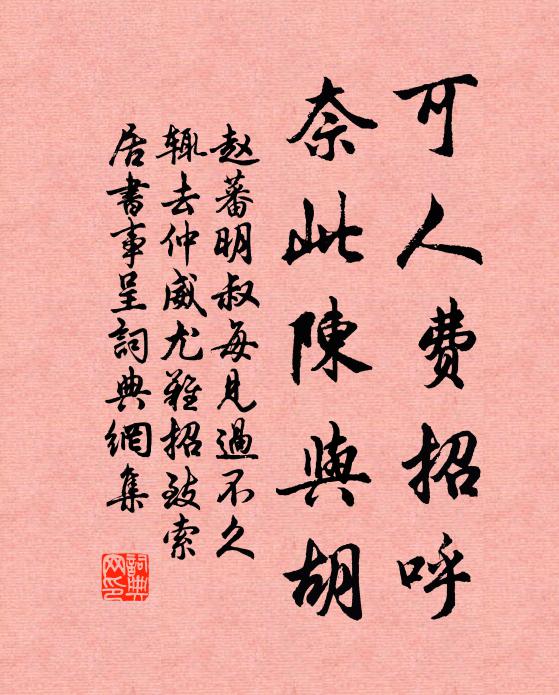 可人費招呼
奈此陳與胡
赵蕃明叔每見過不久
輒去仲威尤難招致索
居書事呈詞典網集
詞典
网印